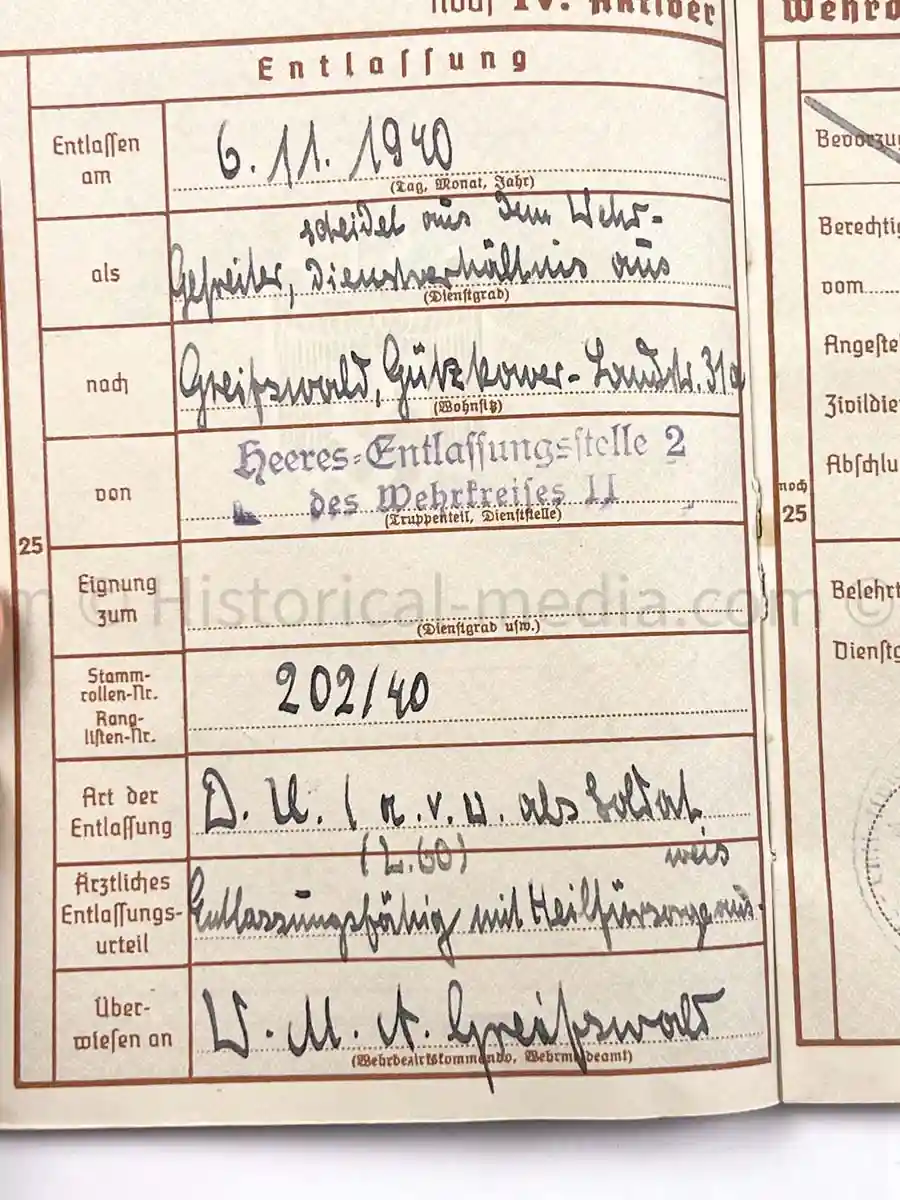 noch IV. Aktiver
Entlassung
Entlassen am
6.11.1940
(Tag, Monat, Jahr)
als
scheidet aus dem Wehr-
Gefreiter, Dienstverhältnis aus
(Dienstgrad)
nach
Greifswald, Gützkower-Landstr. 31a
(Wohnsitz)
von
Heeres-Entlassungsstelle 2
des Wehrkreises II
(Truppenteil, Dienststelle)
25
Eignung zum
(Dienstgrad usw.)
Stamm-
rollen-Nr.
Rang-
listen-Nr.
202/40
Art der
Entlassung
D. U. (a.v.u. als Soldat
(L.60)
Ärztliches
Entlassungs-
urteil
weis
Entlassungsfähig mit Heilfürsorgeaus-
Über-
wiesen an
W. M. A. Greifswald
(Wehrbezirkskommando, Wehrmeldeamt)
Wehrd
Bevorzug
Berechtig
vom
Angeste
Zivildie
Abschlu
noch
25
Belehrt
Dienstg
© Historical-media.com ©